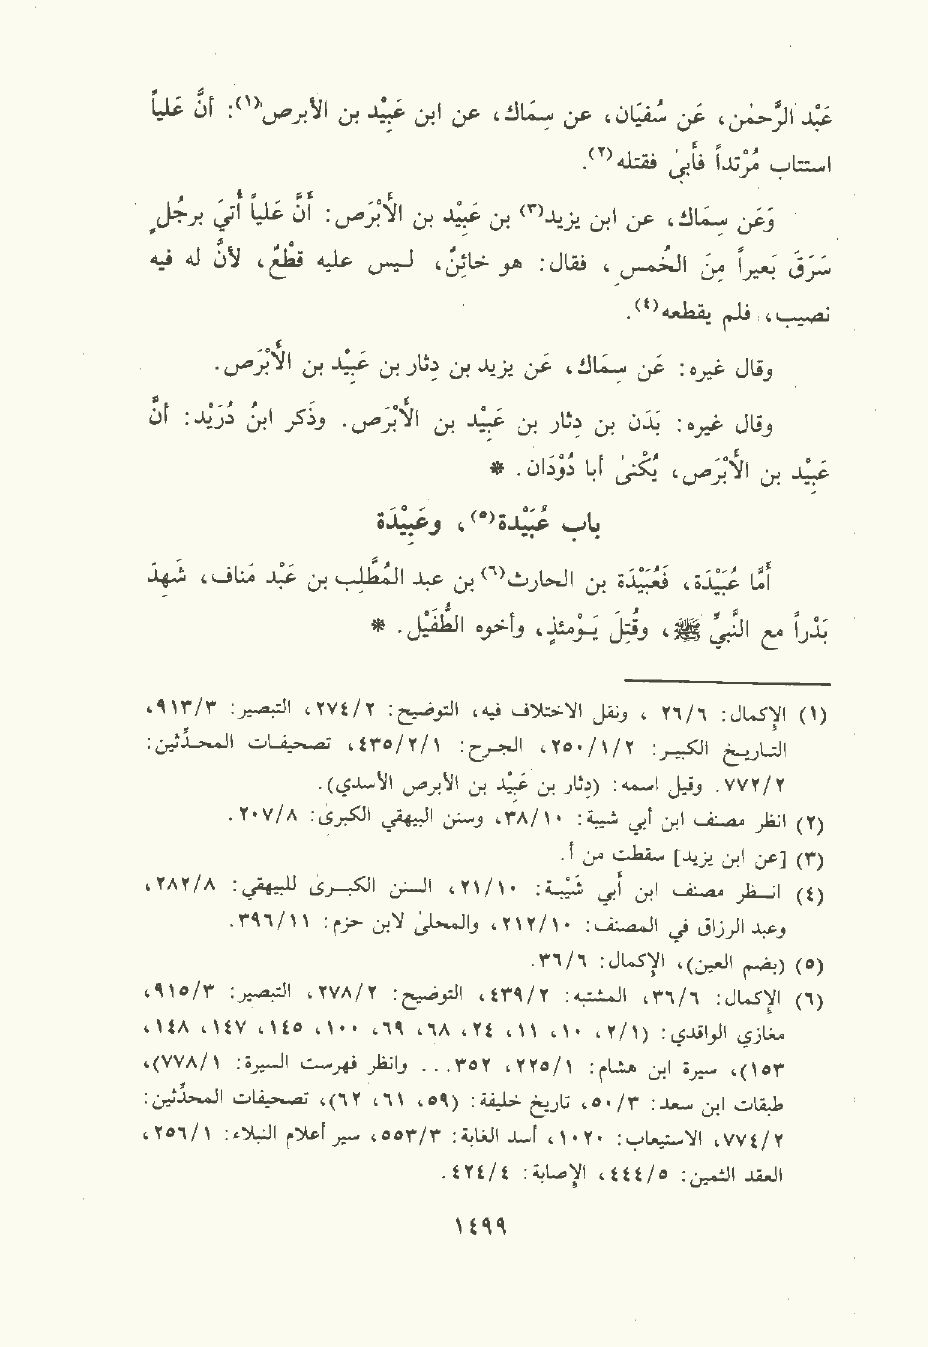 عَبْد الرَّحمٰن، عَن سُفيَان، عن سِمَاك، عن ابن عبِيْد بن الأبرص(١): أنَّ عَلياً
استتاب مُرْتداً فأَبىٰ فقتله(٢).
وَعَن سِمَاك، عن ابن يزيد(٣) بن عبِيْد بن الأَبْرَص: أنَّ عَلياً أُتيَ برجُلٍ
سَرَقَ بَعيراً مِنَ الخُمـس، فقال: هو خائنٌ، ليـس عليه قطْعٌ، لأنَّ له فيه
نصيب، فلم يقطعه(٤).
وقال غيره: عَن سِمَاك، عَن يزيد بن دِثار بن عبِيْد بن الأَبْرَص.
وقال غيره: بَدَن بن دِثار بن عبِيْد بن الأَبْرَص. وذَكر ابنُ دُرَيْد: أنَّ
عبِيْد بن الأَبْرَص، يُكَنىٰ أبا دُوْدَان. *
باب عُبَيْدة(٥)، وعَبِيْدَة
أمَّا عُبَيْدَة، فَعُبَيْدَة بن الحارث(٦) بن عبد المُطَّلِب بن عَبْد مَناف، شَهِدَ
بَدْراً مع النَّبيِّ ﷺ، وقُتِلَ يَـوْمئذٍ، وأخوه الطُّفَيْل. *
(١) الإِكمال: ٢٦/٦ ، ونقل الاختلاف فيه، التوضيح: ٢٧٤/٢، التبصير: ٩١٣/٣،
التـاريـخ الكبيـر: ٢٥٠/١/٢، الجـرح: ٤٣٥/٢/١، تصحيـفـات المحـدِّثين:
٧٧٢/٢. وقيل اسمه: (دِثار بن عبِيْد بن الأبرص الأسدي).
(٢) انظر مصنف ابن أبي شيبة: ٣٨/١٠، وسنن البيهقي الكبرى: ٢٠٧/٨.
(٣) [عن ابن يزيد] سقطت من أ.
(٤) انـظر مصنف ابن أبي شَيْبـة: ٢١/١٠، السـنن الكبـرى للبيهقي: ٢٨٢/٨،
وعبد الرزاق في المصنف: ٢١٢/١٠، والمحلىٰ لابن حزم: ٣٩٦/١١.
(٥) (بضم العين)، الإِكمال: ٣٦/٦.
(٦) الإِكمال: ٣٦/٦، المشتبه: ٤٣٩/٢، التوضيح: ٢٧٨/٢، التبصير: ٩١٥/٣،
مغازي الواقدي: (٢/١، ١٠، ١١، ٢٤، ٦٨، ٦٩، ١٠٠، ١٤٥، ١٤٧، ١٤٨،
١٥٣)، سير ابن هشام: ٢٢٥/١، ٣٥٢... وانظر فهرست السيرة: ٧٧٨/١)،
طبقات ابن سعد: ٥٠/٣، تاريخ خليفة: (٥٩، ٦١، ٦٢)، تصحيفات المحدِّثين:
٧٧٤/٢، الاستيعاب: ١٠٢٠، أسد الغابة: ٥٥٣/٣، سير أعلام النبلاء: ٢٥٦/١،
العقد الثمين: ٤٤٤/٥، الإِصابة: ٤٢٤/٤.
١٤٩٩